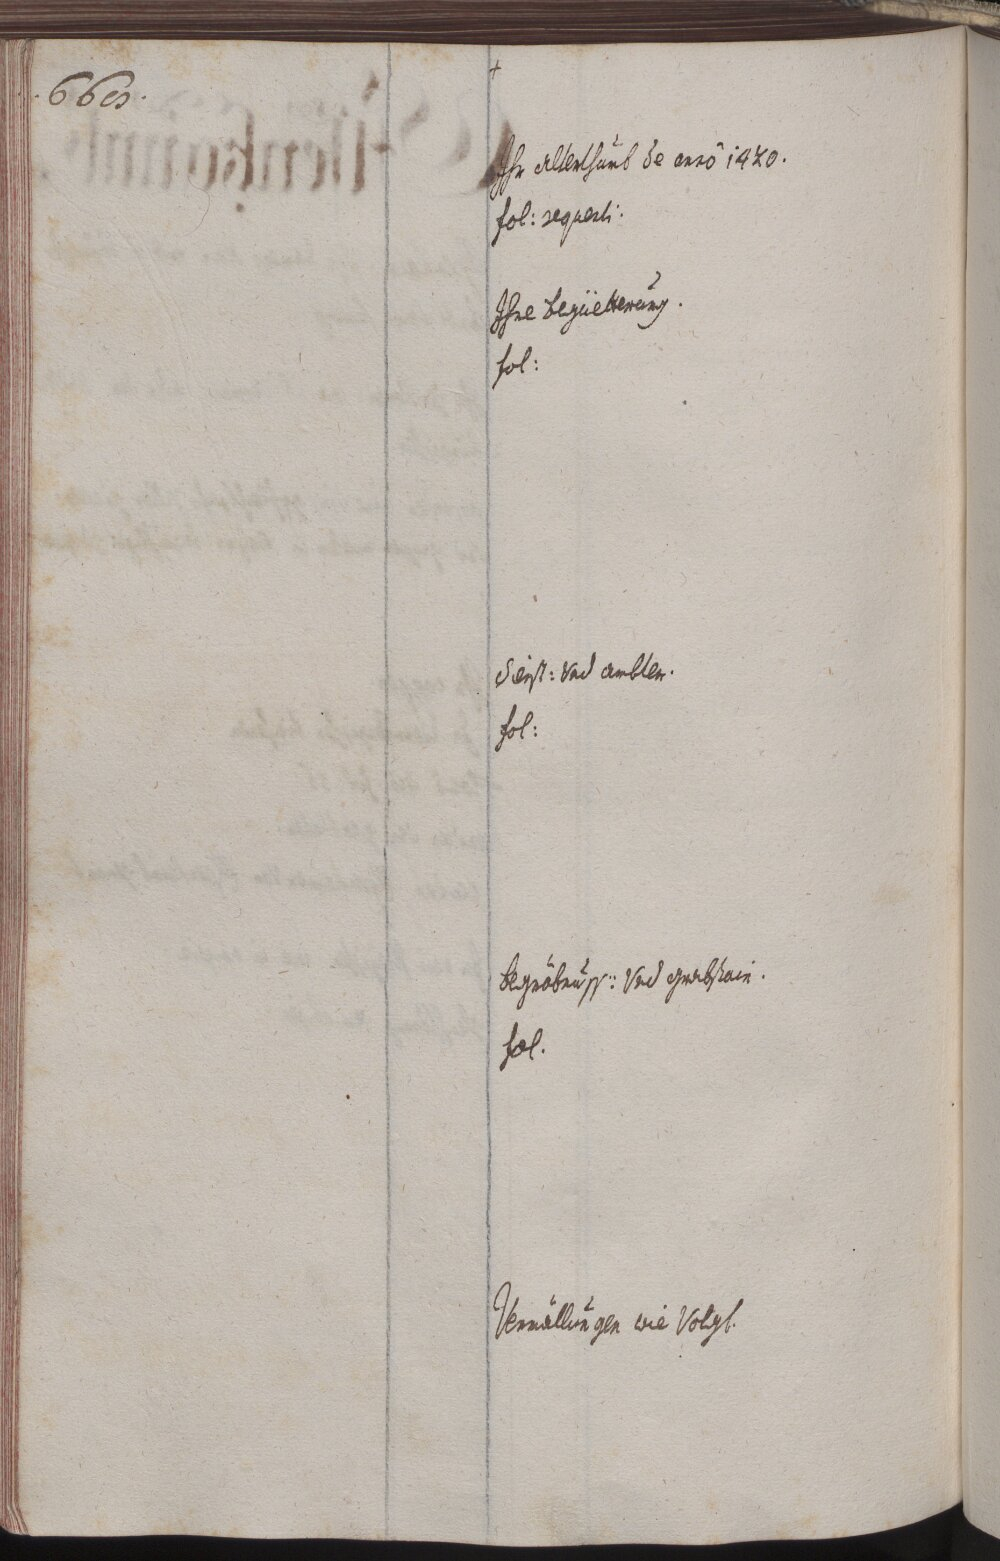 .66
Ihr alterthumb de anno 1420.
fol: sequenti.
Ihre begüetterung.
fol:
Dienst: Vnd ambter.
fol:
begräbnuss: Vnd grabstain.
fol.
Vermällungen wie Volgt.